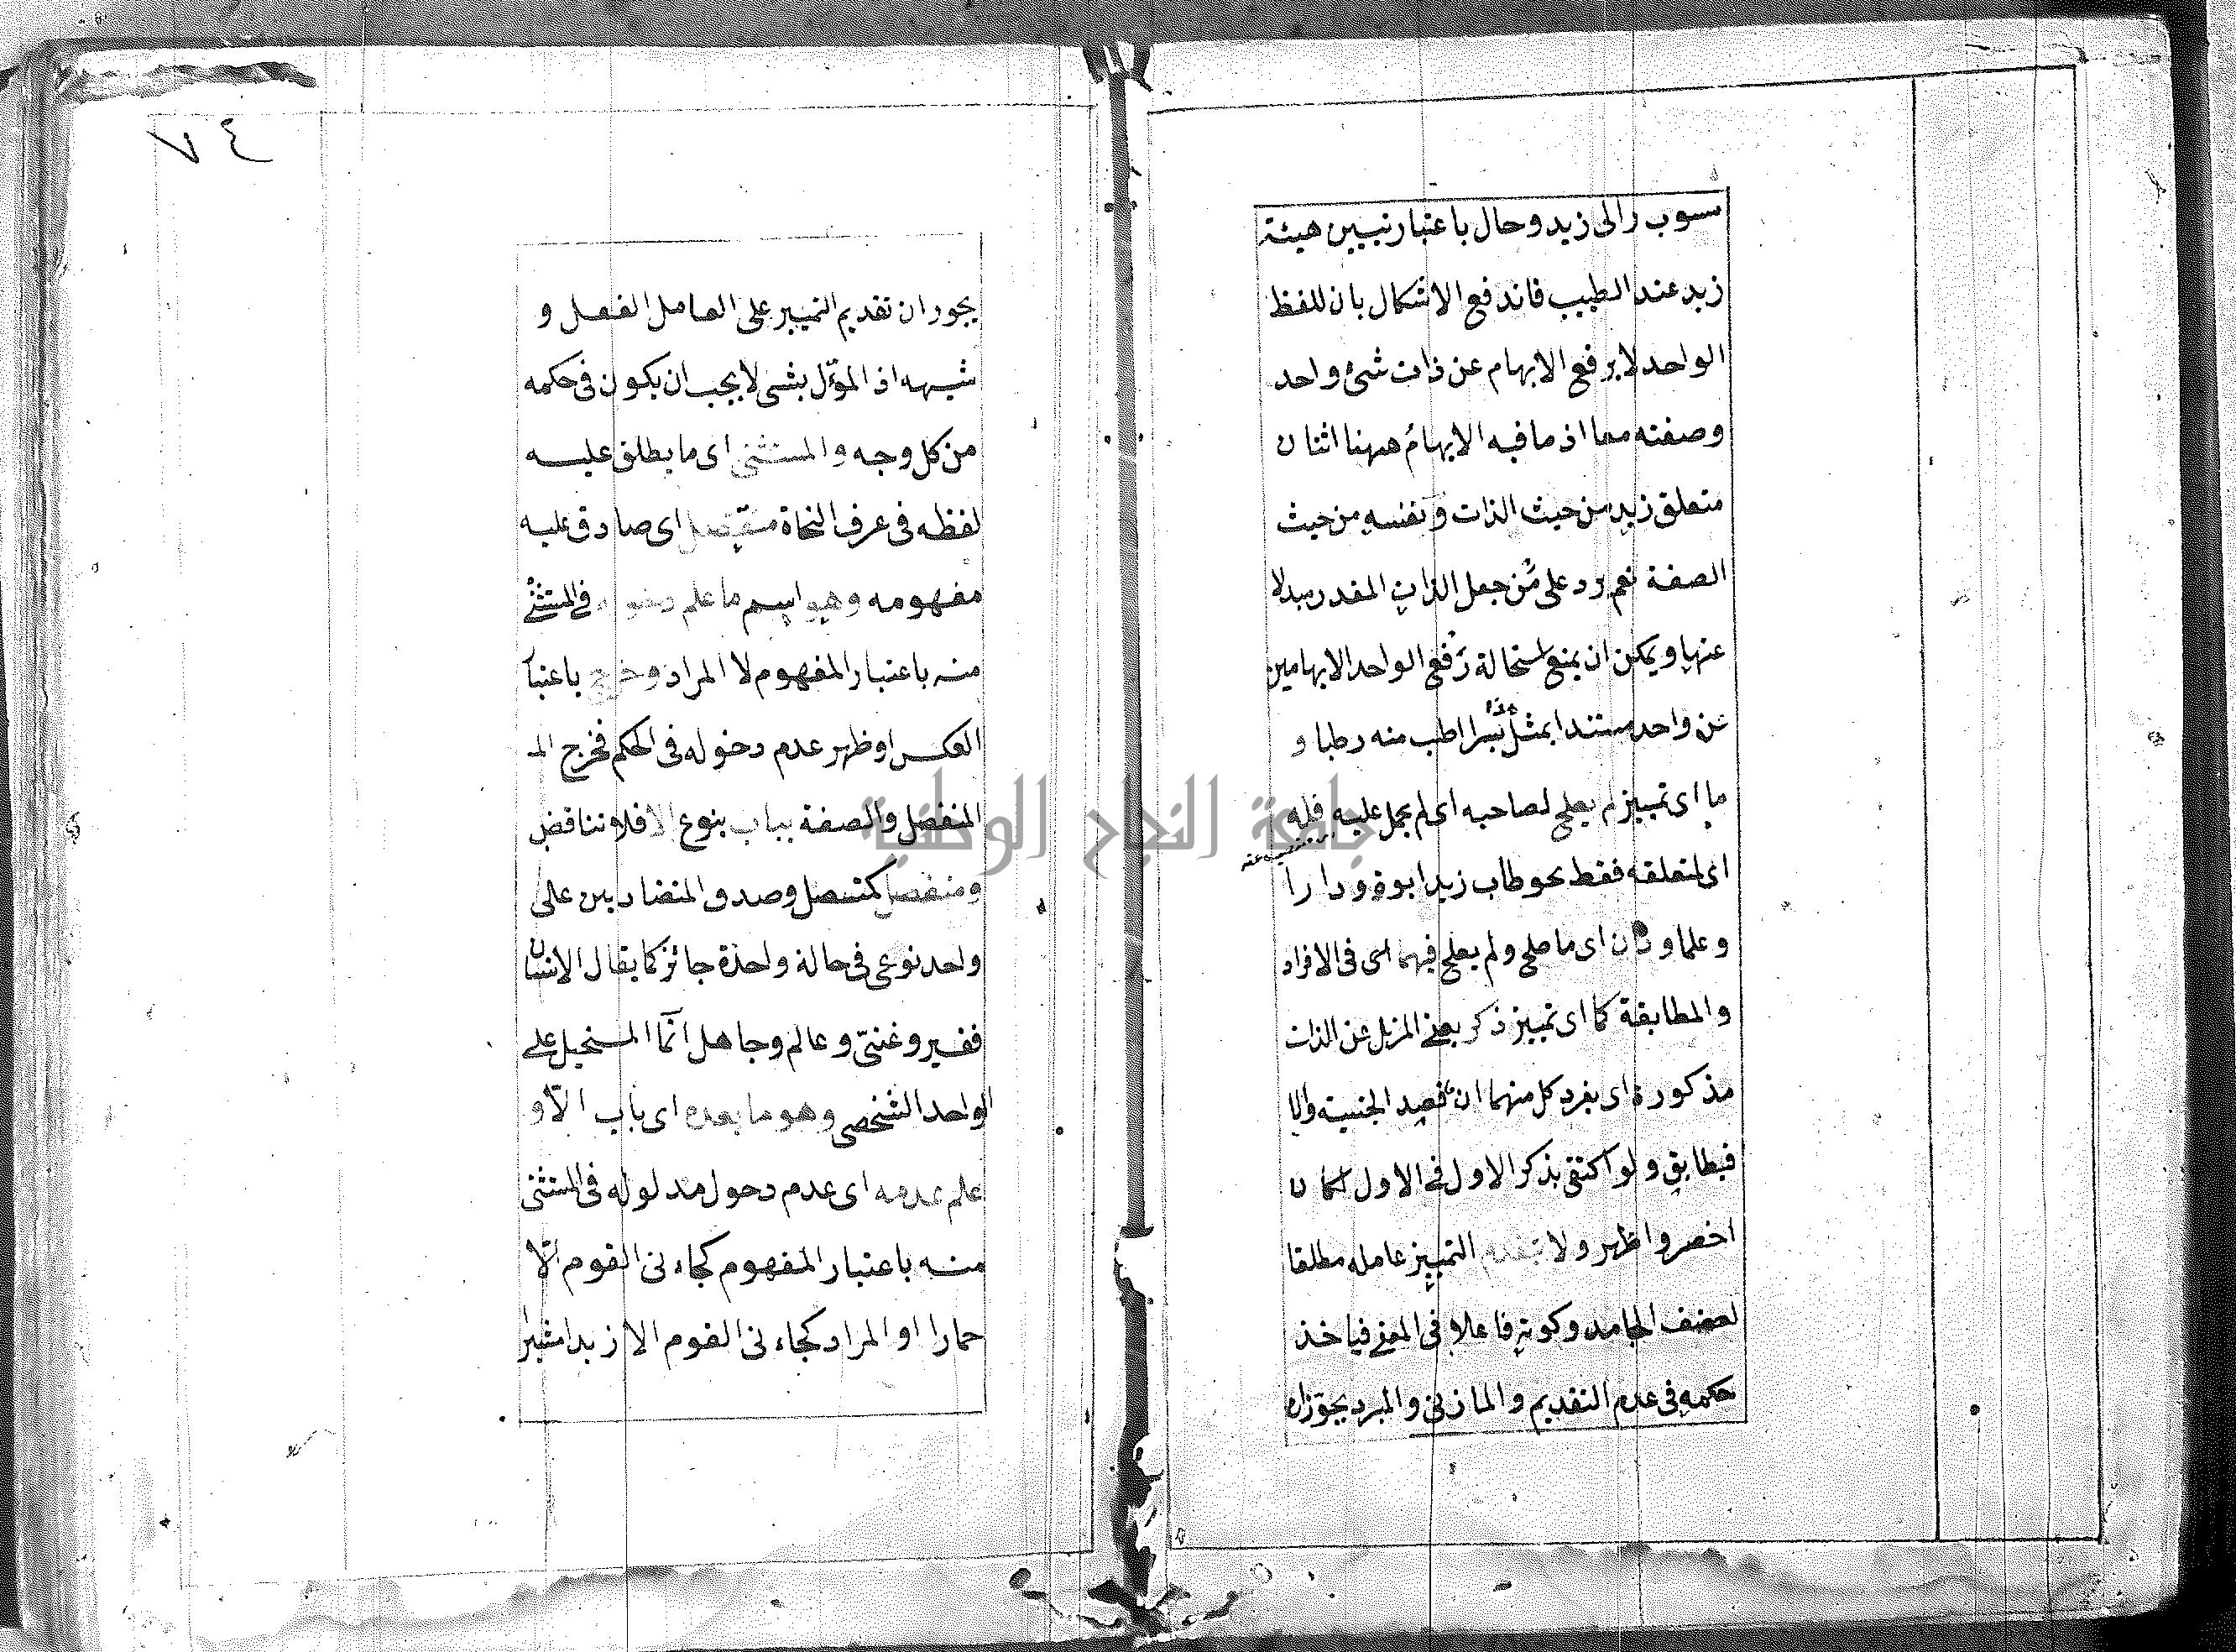 سوب الى زيد وحال باعتبار تبيين هيئة
زيد عند الطيب فاندفع الاشكال بان للفظ
الواحد لا يرفع الابهام عن ذات شئ واحد
وصفته معا اذ ما فيه الابهام ههنا اثنان
متعلق زيد من حيث الذات ونفسه من حيث
الصفة نعم يرد على من جعل الذات المقدر مبدلا
عنها ويمكن ان يمنع استحالة رفع الواحد الابهامين
عن واحد مستندا بمثل هذا بسرا اطيب منه رطبا و
ما اى تمييز لم يصلح لصاحبه اى لم يحمل عليه فله
اى لمتعلقه فقط نحو طاب زيد ابوة ودارا
وعلما و اى ما صلح ولم يصلح فيهما اى فى الافراد
والمطابقة كما اى تمييز ذكر بمعنى المزيل عن الذات
مذكورة اى يفرد كل منهما ان قصد الجنسية والا
فيطابق ولو اكتفى بذكر الاول فى الاول لكان
اخصر واظهر ولا يتقدم التمييز عامله مطلقا
لضعف الجامد وكونه فاعلا فى المعنى فياخذ
حكمه فى عدم التقديم والمازنى والمبرد يجوزان
٧٤
يجوزان تقديم التمييز على العامل الفعل و
شبهه اذ المؤل بشى لا يجب ان يكون فى حكمه
من كل وجه والمستثنى اى ما يطلق عليه
لفظه فى عرف النحاة متصل اى صادق عليه
مفهومه وهو اسم ما علم دخوله فى المستثنى
منه باعتبار المفهوم لا المراد وخرج باعتبا
العكس او ظهر عدم دخوله فى الحكم فخرج المـ
المنفصل والصفة بباب بنوع الا فلا تناقض
ومنفصل كمتصل وصدق المتضادين على
واحد نوعى فى حالة واحدة جائز كما يقال الانسان
فقير وغنىّ وعالم وجاهل انّما المستحيل على
الواحد الشخصى وهو ما بعده اى باب الاّ و
علم عدمه اى عدم دحول مدلوله فى المستثنى
منه باعتبار المفهوم كجاءنى القوم الاّ
حمارا او المراد كجاءنى القوم الا زيدا مشيرا
جامعة النجاح الوطنية